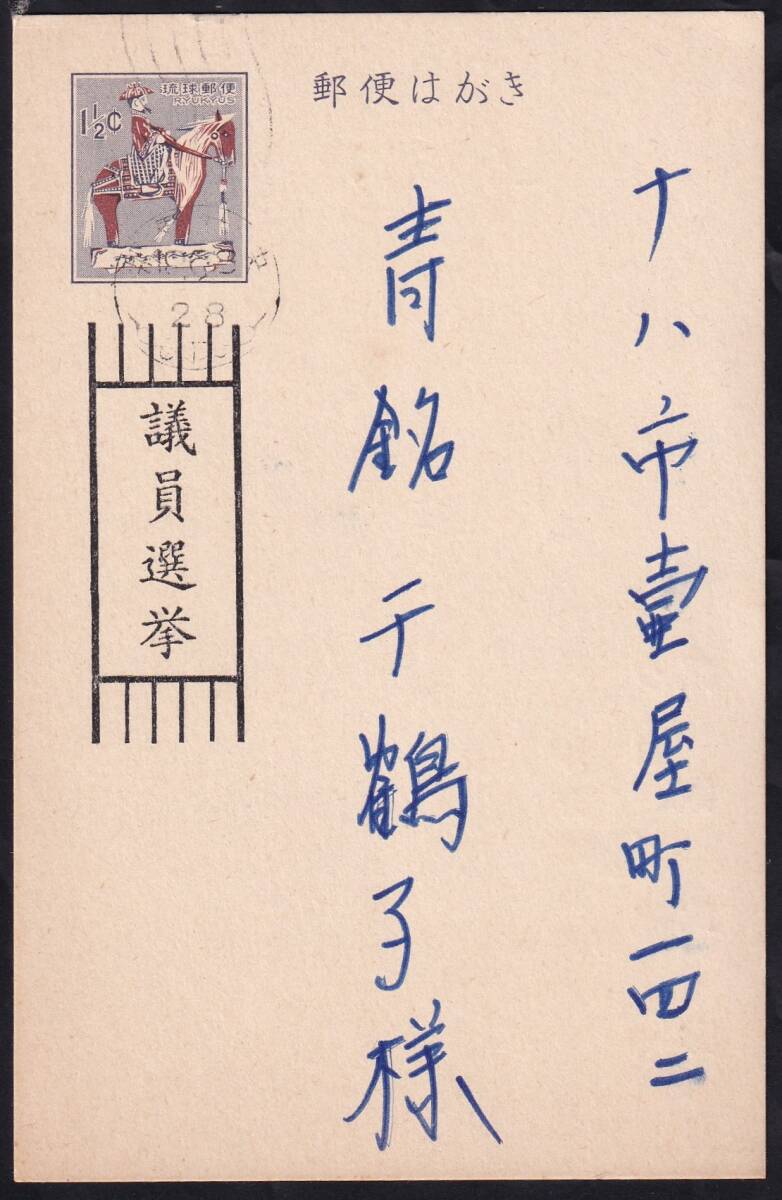 郵便はがき
琉球郵便
RYUKYUS
1½¢
ナハ市壷屋町一四二
青銘千鶴子様
28
議員選挙